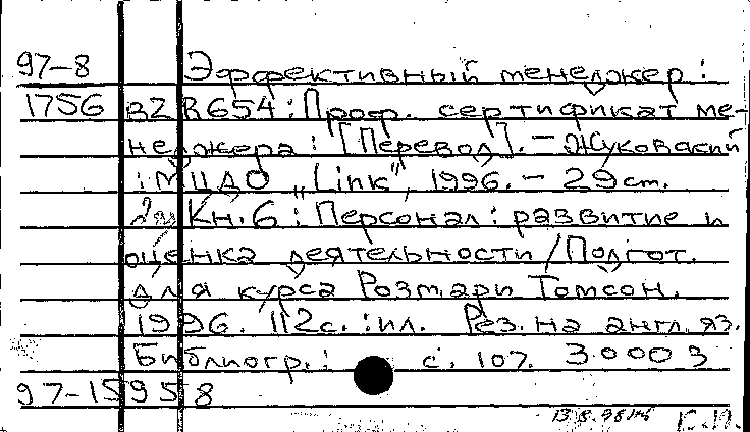 97-8 Эффективный менеджер:
1756 BZ R654: Проф. сертификат ме-
неджера: [Перевод]. - Жуковский
: МЦДО „Link“, 1996. - 29 см.
Кн. 6: Персонал: развитие и
оценка деятельности / Подгот.
для курса Розмари Томсон.
1996. 112 с.: ил. Рез. на англ. яз.
Библиогр.: с. 107. 3000 э
97-15958